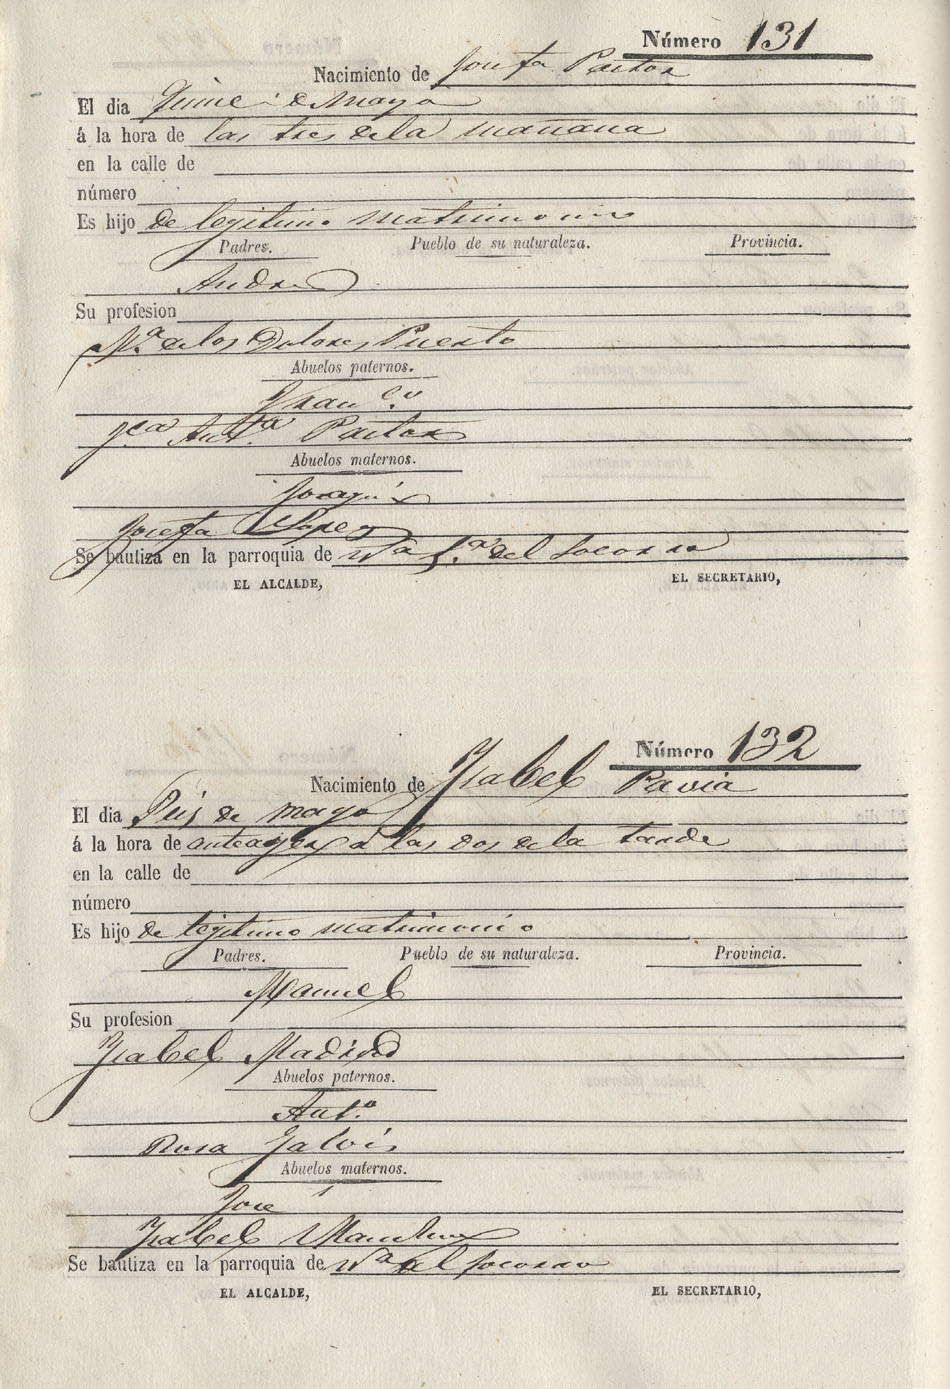 Número 131
Nacimiento de Josefa Pastor
El dia Quince de Mayo
á la hora de las tres de la mañana
en la calle de
número
Es hijo de legitimo matrimonio
Padres. Pueblo de su naturaleza. Provincia.
Andres
Su profesion
Mª de los Dolores Puerto
Abuelos paternos.
Franco
Antª Pastor
Abuelos maternos.
Joaquin
Josefa Lopez
Se bautiza en la parroquia de Nª Sª del Socorro
EL ALCALDE, EL SECRETARIO,
Número 132
Nacimiento de Ysabel Pavia
El dia de mayo
á la hora de anteayer á las dos de la tarde
en la calle de
número
Es hijo de legitimo matrimonio
Padres. Pueblo de su naturaleza. Provincia.
Manuel
Su profesion
Ysabel Madrid
Abuelos paternos.
Antº
Rosa Galvis
Abuelos maternos.
José
Ysabel
Se bautiza en la parroquia de Nª del Socorro
EL ALCALDE, EL SECRETARIO,